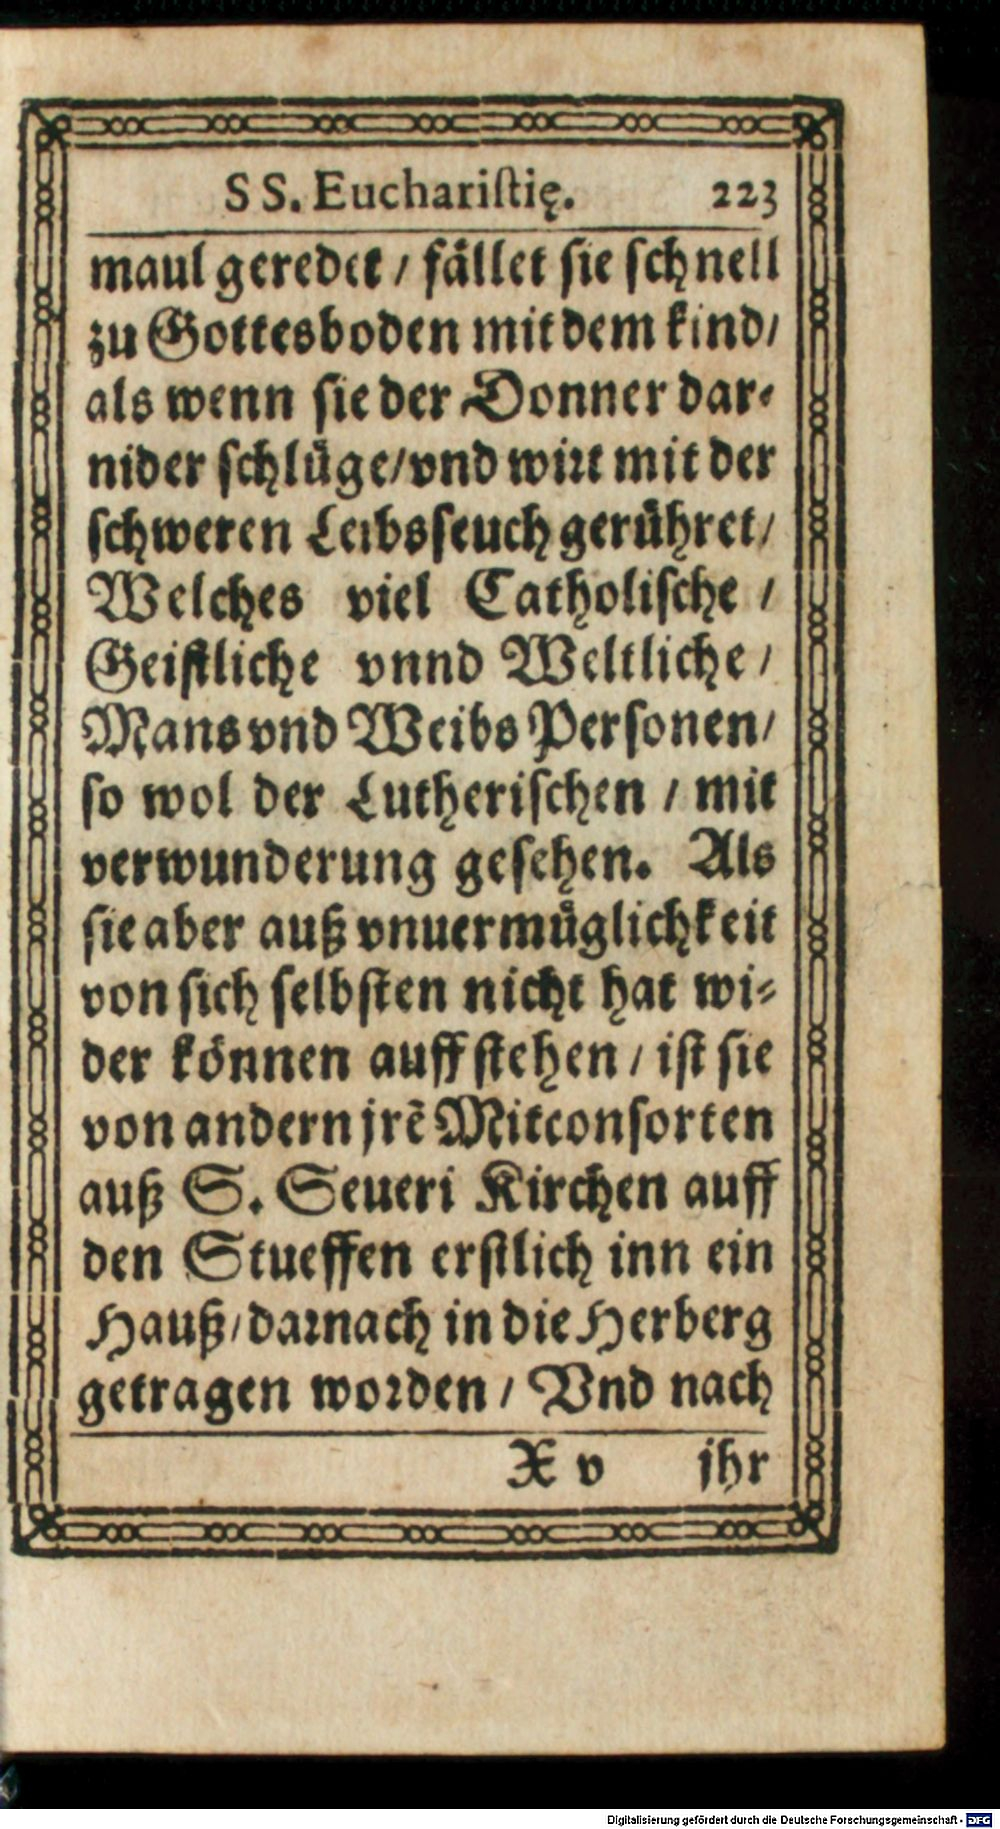 SS. Euchariſtię. 223
maul geredet / fället ſie ſchnell
zu Gottesboden mit dem kind /
als wenn ſie der Donner dar⸗
nider ſchlüge / vnd wirt mit der
ſchweren Leibsſeuch gerühret /
Welches viel Catholiſche /
Geiſtliche vnnd Weltliche /
Mans vnd Weibs Perſonen /
ſo wol der Lutheriſchen / mit
verwunderung geſehen. Als
ſie aber auß vnuermüglichkeit
von ſich ſelbſten nicht hat wi⸗
der können auff ſtehen / iſt ſie
von andern jrē Mitconſorten
auß S. Seueri Kirchen auff
den Stueffen erſtlich inn ein
Hauß / darnach in die Herberg
getragen worden / Vnd nach
X v jhr
Digitalisierung gefördert durch die Deutsche Forschungsgemeinschaft - DFG